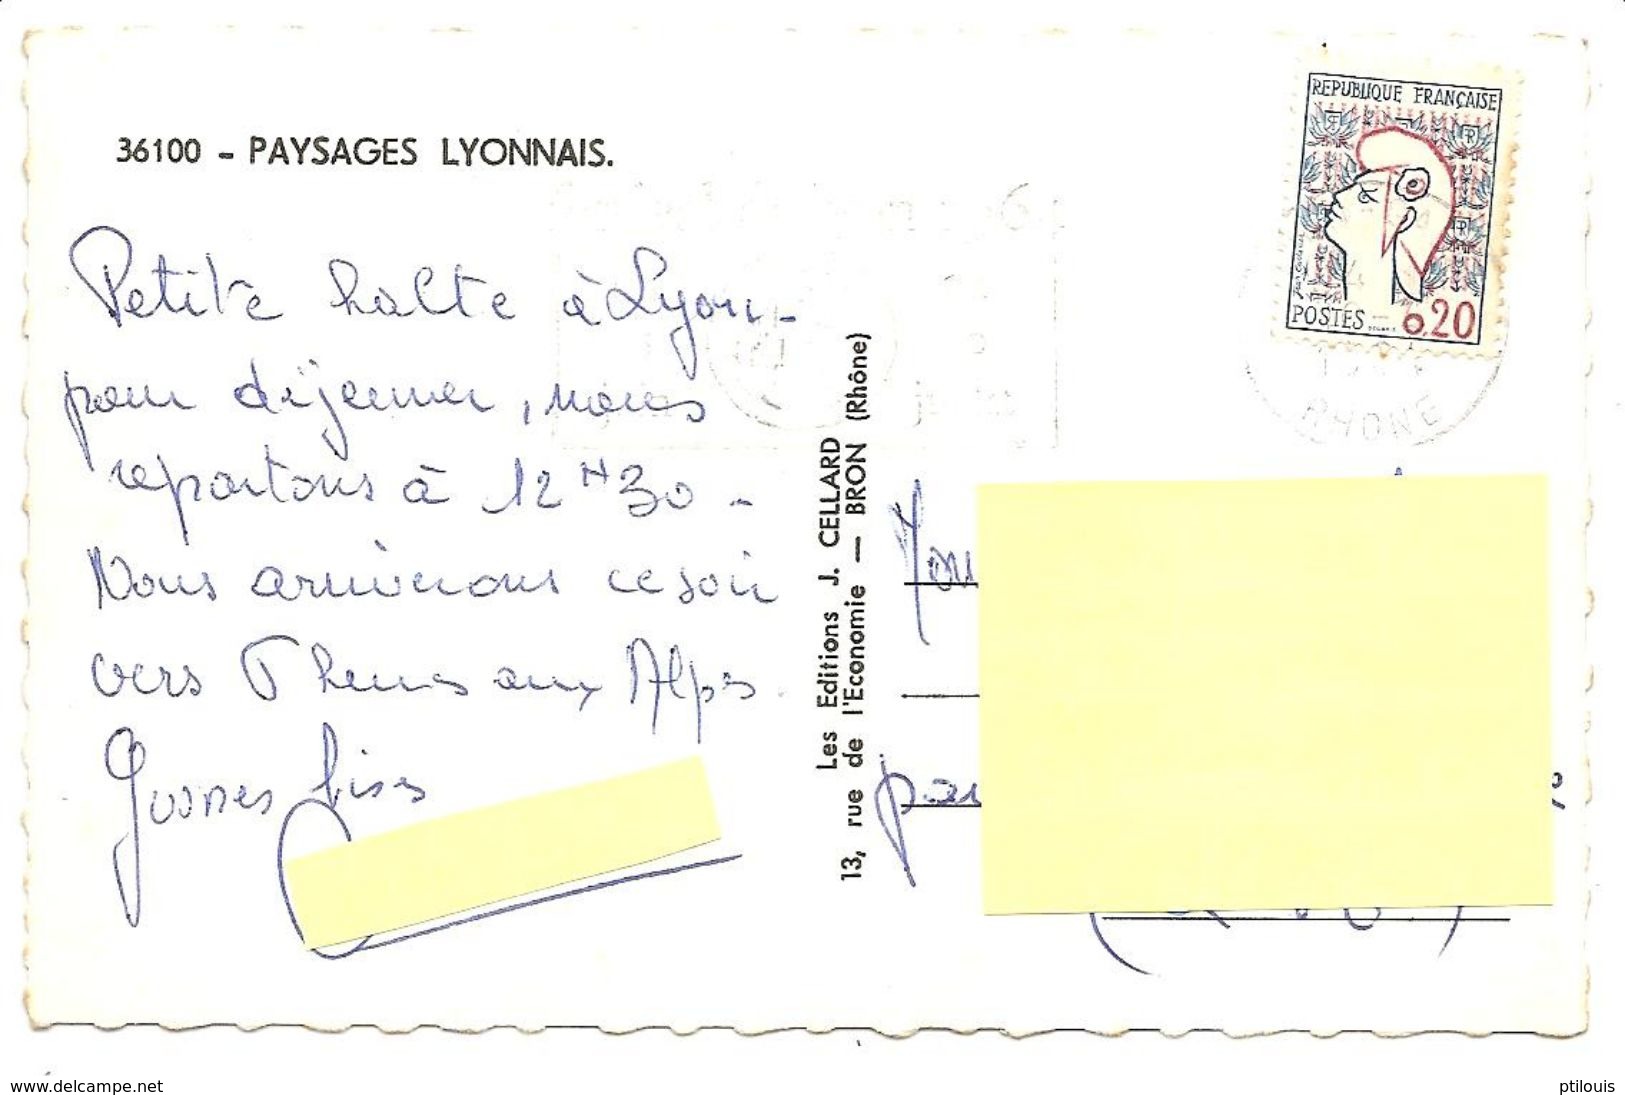 36100 - PAYSAGES LYONNAIS.
Petite halte à Lyon -
pour déjeuner, nous
repartons à 12 H 30 -
Nous arriverons ce soir
vers Thenes aux Alpes.
bises
Les Editions J. CELLARD
13, rue de l'Economie — BRON (Rhône)
REPUBLIQUE FRANÇAISE
POSTES
0,20
RHONE
www.delcampe.net
ptilouis